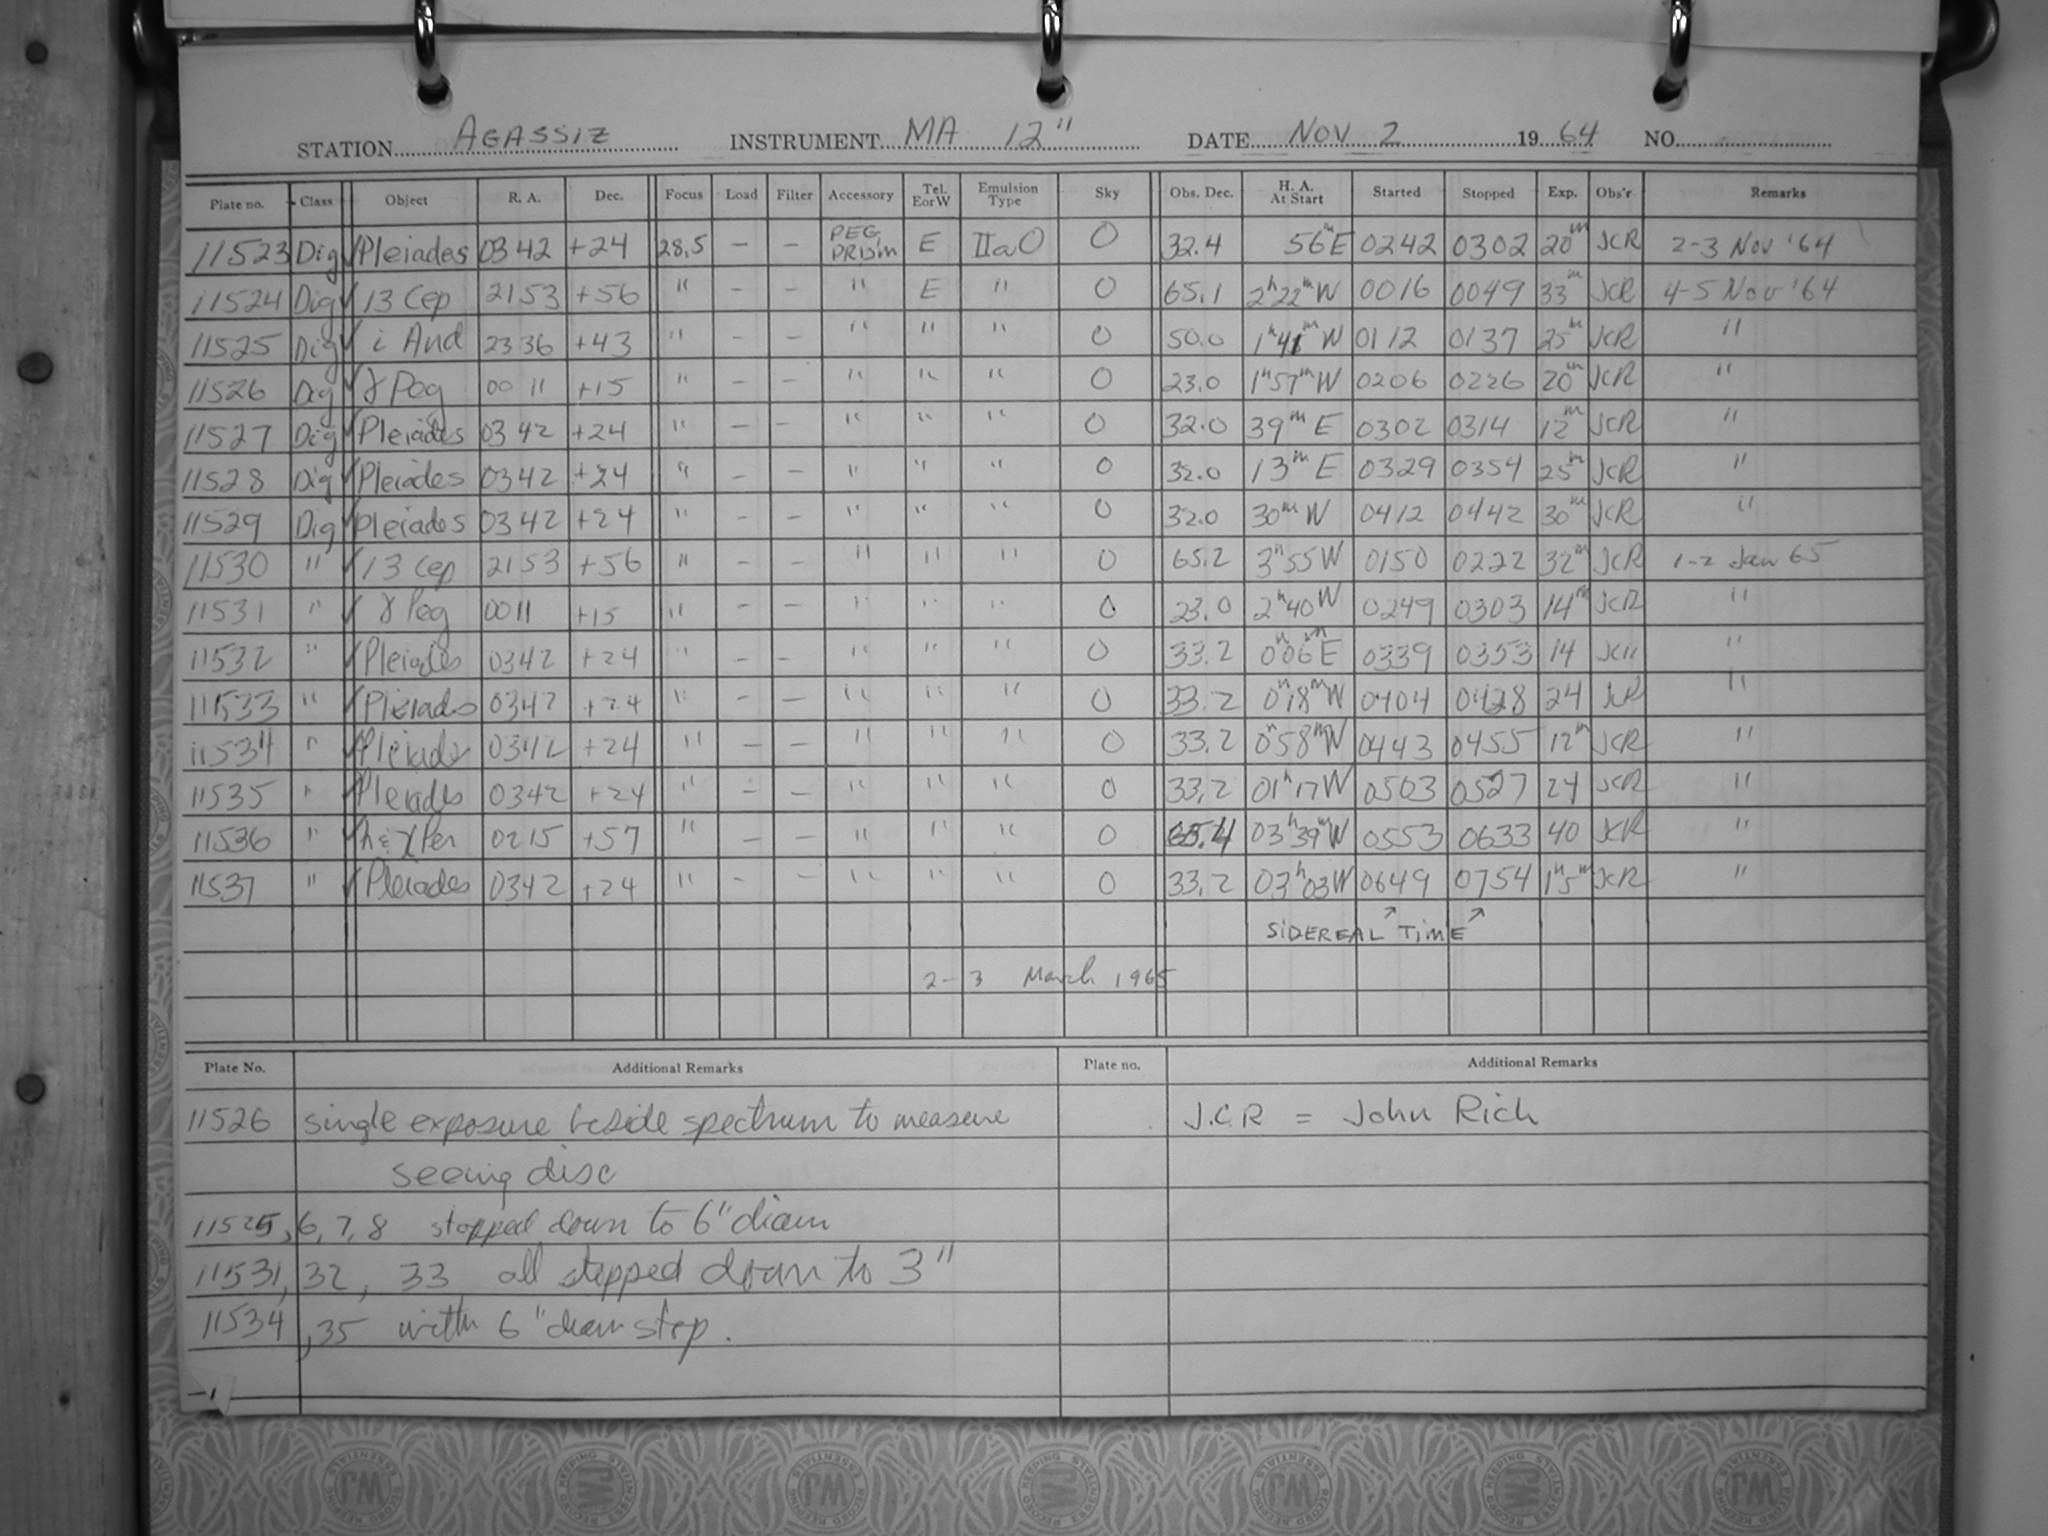 STATION AGASSIZ INSTRUMENT MA 12" DATE NOV 2 1964 NO.
Plate no. Class Object R. A. Dec. Focus Load Filter Accessory Tel. E or W Emulsion Type Sky Obs. Dec. H. A. At Start Started Stopped Exp. Obs'r Remarks
11523 Dig ✓ Pleiades 0342 +24 28.5 – – PEG PRISM E IIaO O 32.4 56ᵐE 0242 0302 20ᵐ JCR 2-3 Nov '64
11524 Dig ✓ 13 Cep 2153 +56 " – – " E " O 65.1 2ʰ22ᵐW 0016 0049 33ᵐ JCR 4-5 Nov '64
11525 Dig ✓ i And 2336 +43 " – – " " " O 50.0 1ʰ41ᵐW 0112 0137 25ᵐ JCR "
11526 Dig ✓ γ Peg 0011 +15 " – – " " " O 23.0 1ʰ57ᵐW 0206 0226 20ᵐ JCR "
11527 Dig ✓ Pleiades 0342 +24 " – – " " " O 32.0 39ᵐ E 0302 0314 12ᵐ JCR "
11528 Dig ✓ Pleiades 0342 +24 " – – " " " O 32.0 13ᵐ E 0329 0354 25ᵐ JCR "
11529 Dig ✓ Pleiades 0342 +24 " – – " " " O 32.0 30ᵐ W 0412 0442 30ᵐ JCR "
11530 " ✓ 13 Cep 2153 +56 " – – " " " O 65.2 3ʰ55W 0150 0222 32ᵐ JCR 1-2 Jan 65
11531 " ✓ γ Peg 0011 +15 " – – " " " O 23.0 2ʰ40W 0249 0303 14ᵐ JCR "
11532 " ✓ Pleiades 0342 +24 " – – " " " O 33.2 0ʰ06ᵐE 0339 0353 14 JCR "
11533 " ✓ Pleiads 0342 +24 " – – " " " O 33.2 0ʰ18ᵐW 0404 0428 24 JCR "
11534 " ✓ Pleiads 0342 +24 " – – " " " O 33.2 0ʰ58ᵐW 0443 0455 12ᵐ JCR "
11535 " ✓ Pleiades 0342 +24 " – – " " " O 33.2 01ʰ17W 0503 0527 24 JCR "
11536 " ✓ h & χ Per 0215 +57 " – – " " " O 65.4 03ʰ39ᵐW 0553 0633 40 JCR "
11537 " ✓ Pleiades 0342 +24 " – – " " " O 33.2 03ʰ03W 0649 0754 1ʰ5ᵐ JCR "
SIDEREAL TIME
2-3 March 1965
Plate No. Additional Remarks Plate no. Additional Remarks
11526 single exposure beside spectrum to measure J.C.R = John Rich
seeing disc
11525, 6, 7, 8 stopped down to 6" diam
11531, 32, 33 all stopped down to 3"
11534, 35 with 6" diam stop.